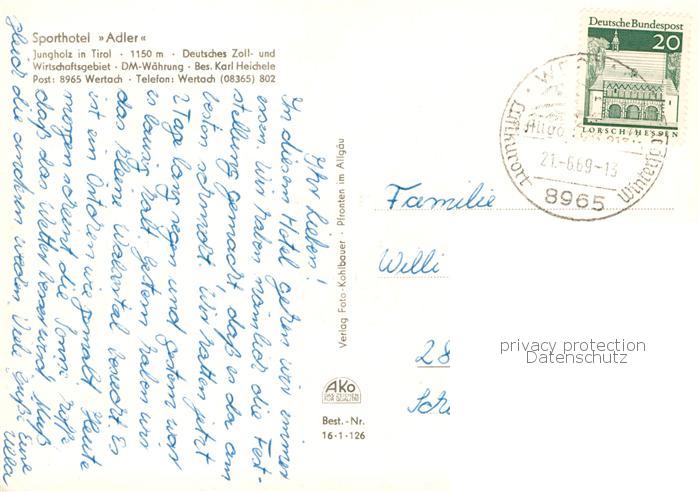 Sporthotel »Adler«
Jungholz in Tirol · 1150 m · Deutsches Zoll- und
Wirtschaftsgebiet · DM-Währung · Bes. Karl Heichele
Post: 8965 Wertach · Telefon: Wertach (08365) 802
Ihr Lieben!
In diesem Hotel gehen wir immer
essen. Wir haben nämlich die Fest-
stellung gemacht, daß es da am
besten schmeckt. Wir hatten jetzt
2 Tage lang regen und gestern war
es lausig kalt. Gestern haben wir
das kleine Walsertal besucht. Es
ist ein Örtchen wie gemalt. Heute
morgen scheint die Sonne. Hoffe
daß das Wetter besser wird. Muß
gleich die anderen wecken. Viele Grüße Eure
Verlag Foto-Kohlbauer · Pfronten im Allgäu
AKO
Best.-Nr.
16·1·126
Deutsche Bundespost
20
LORSCH/HESSEN
Allgäu
21.-6.69-13
8965
Familie
Willi
28
privacy protection
Datenschutz